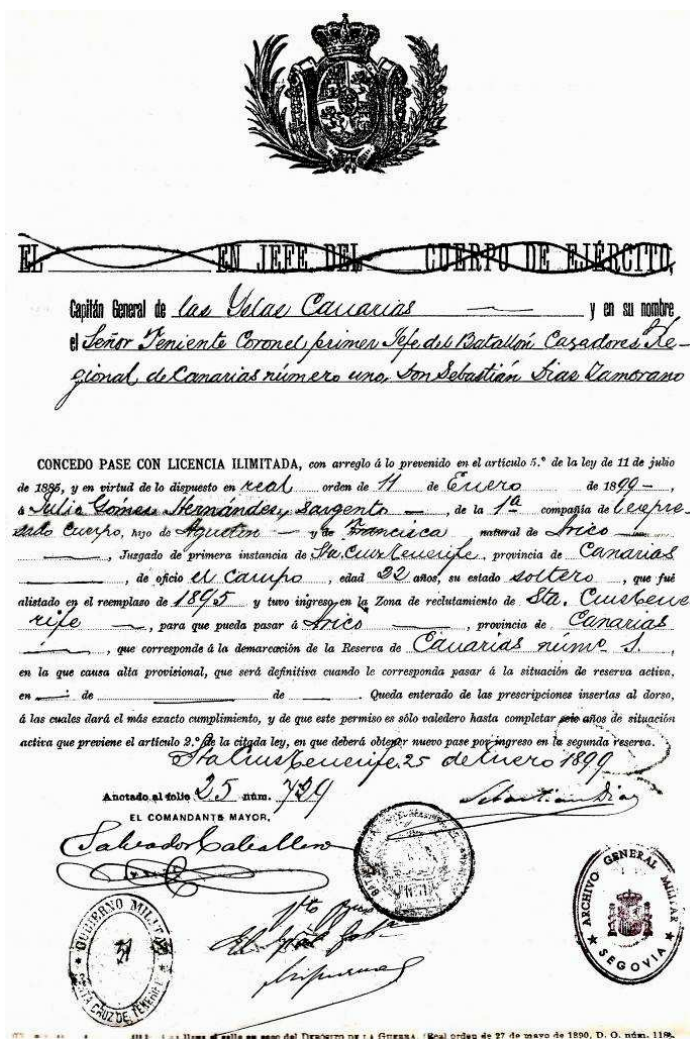 EL EN JEFE DEL CUERPO DE EJÉRCITO,
Capitán General de las Yslas Canarias y en su nombre
el Señor Teniente Coronel, primer Jefe del Batallón Cazadores Re-
gional de Canarias número uno, Don Sebastián Dias Zamorano
CONCEDO PASE CON LICENCIA ILIMITADA, con arreglo á lo prevenido en el artículo 5.º de la ley de 11 de julio
de 1885, y en virtud de lo dispuesto en real orden de 11 de Enero de 1899,
á Julio Gómes Hernándes, Sargento, de la 1ª compañía de l expre-
sado Cuerpo, hijo de Agustín y de Francisca natural de Arico
, Juzgado de primera instancia de Sta. Cruz Tenerife, provincia de Canarias
, de oficio el campo, edad 22 años, su estado soltero, que fué
alistado en el reemplazo de 1895 y tuvo ingreso en la Zona de reclutamiento de Sta. Crus Tene
rife, para que pueda pasar á Arico, provincia de Canarias
, que corresponde á la demarcación de la Reserva de Canarias núm.º 1.,
en la que causa alta provisional, que será definitiva cuando le corresponda pasar á la situación de reserva activa,
en de de Queda enterado de las prescripciones insertas al dorso,
á las cuales dará el más exacto cumplimiento, y de que este permiso es sólo valedero hasta completar seis años de situación
activa que previene el artículo 2.º de la citada ley, en que deberá obtener nuevo pase por ingreso en la segunda reserva.
Sta Crus Tenerife 25 de Enero 1899
Anotado al folio 25 núm. 739
Sebastián Dias
EL COMANDANTE MAYOR,
Salvador Caballero
GOBIERNO MILITAR
SANTA CRUZ DE TENERIFE
ARCHIVO GENERAL MILITAR
SEGOVIA
Vto Bno
El Gral Gobr
el sello en seco del DEPÓSITO DE LA GUERRA. (Real orden de 27 de mayo de 1890, D. O. núm. 118).